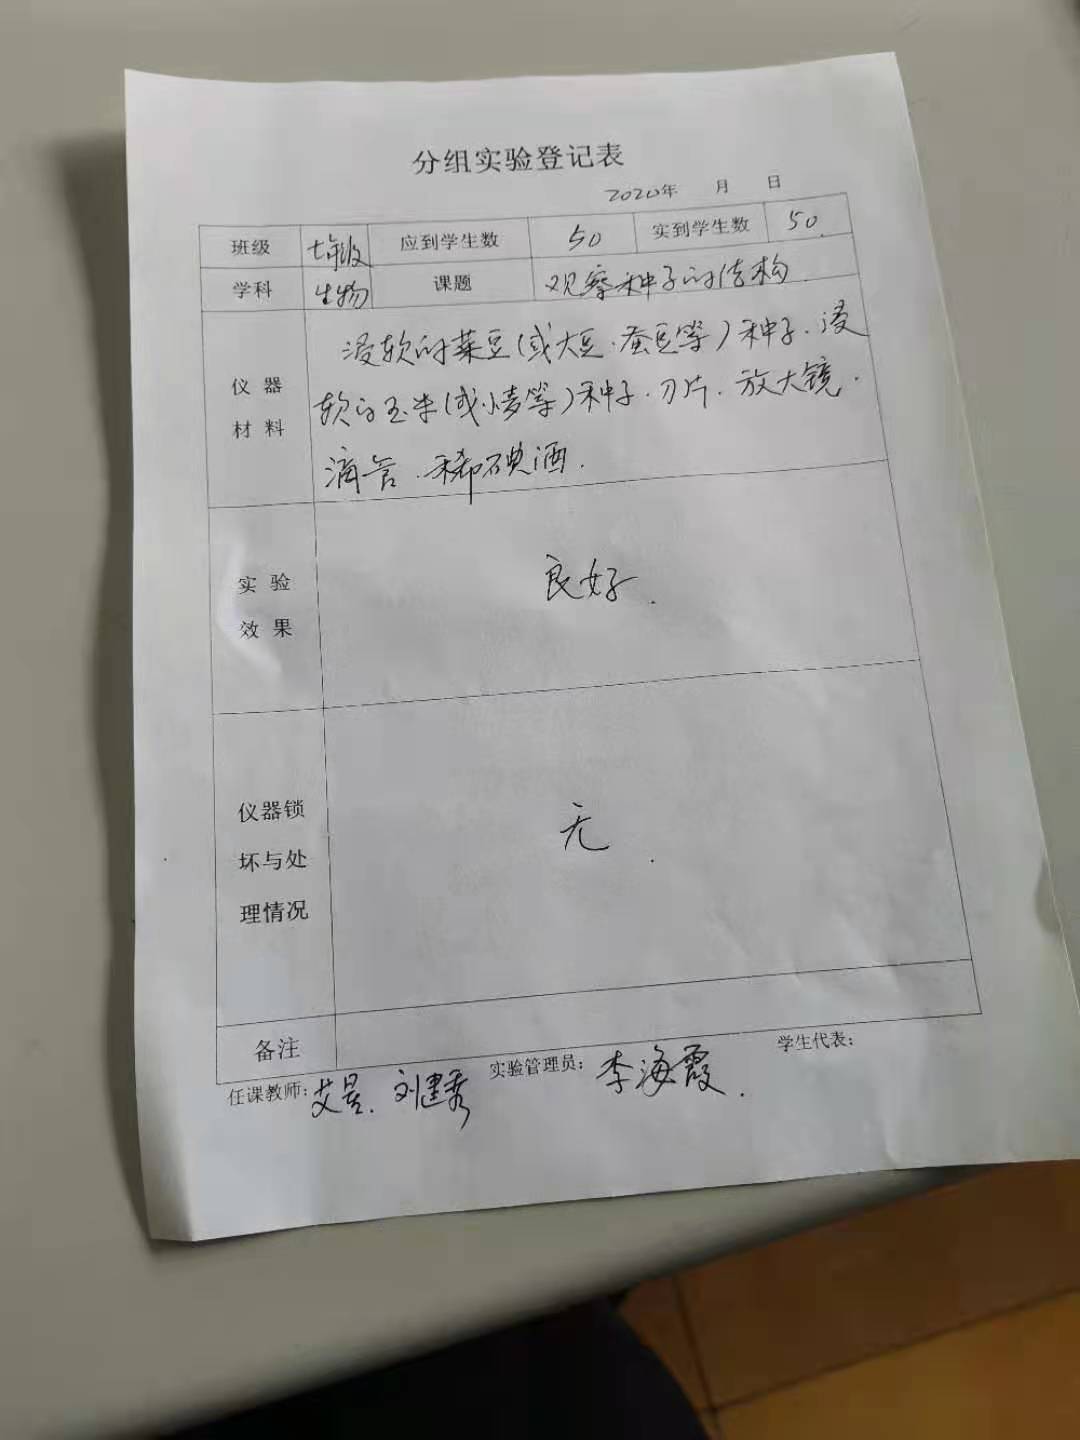 分组实验登记表
2020年 月 日
班级 七年级 应到学生数 50 实到学生数 50.
学科 生物 课题 观察种子的结构
仪器
材料
浸软的菜豆(或大豆、蚕豆等)种子、浸
软的玉米(或小麦等)种子、刀片、放大镜、
滴管、稀碘酒.
实验
效果
良好.
仪器锁
坏与处
理情况
无.
备注
任课教师: 艾昱. 刘建秀 实验管理员: 李海霞. 学生代表: